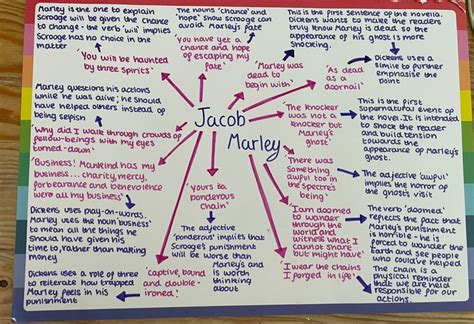 Marley is the one to explain
Scrooge will be given the chance
to change - the verb 'will' implies
Scrooge has no choice in the
matter
'You will be haunted
by three spirits'
The nouns 'chance' and
'hope' show Scrooge can
avoid Marley's fate
'You have yet a
chance and hope
of escaping my
fate'
This is the first sentence of the novella.
Dickens wants to make the readers
truly know Marley is dead so the
appearance of his ghost is more
shocking.
'Marley was
dead to
begin with'
'As dead as
a doornail'
Dickens uses a
simile to further
emphasise the
point
Marley questions his actions
while he was alive; he should
have helped others instead of
being selfish
'Why did I walk through crowds of
fellow-beings with my eyes
turned-down'
Jacob
Marley
'The knocker
was not a
knocker but
Marley's
ghost'
This is the first
supernatural event of
the novel. It is intended
to shock the reader
and build tension
towards the
appearance of Marley's
ghost.
'Business! Mankind has my
business... charity, mercy,
forbearance and benevolence
were all my business'
'There was
something
awful too in
the spectre's
being'
The adjective 'awful'
implies the horror of
the ghosts visit
Dickens uses play-on-words.
Marley uses the noun 'business'
to mean all the things he
should have given his
time to, rather than making
money
'Yours is
ponderous
chain'
The adjective
'ponderous' implies that
Scrooge's punishment
will be worse than
Marley's and
is worth thinking
about
'I am doomed
to wander
through the
world and
witness what I
cannot share
but might have'
The verb 'doomed'
reflects the fact that
Marley's punishment
is horrible - he is
forced to wander the
Earth and see people
who could've helped
Dickens uses a role of three
to reiterate how trapped
Marley feels in his
punishment
'captive, bound
and double-
ironed!'
'I wear the chains
I forged in life'
The chain is a
physical reminder
that we are held
responsible for our
actions.